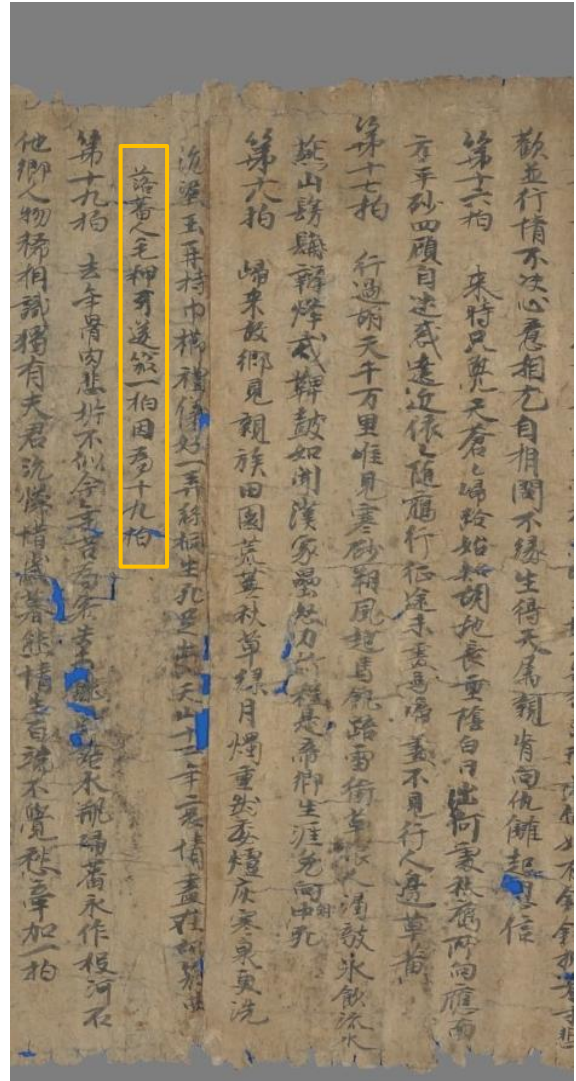 歡並行情不決心意相尤自相關不緣生得天屬親豈向仇讎結恩信
第十六拍 來時只覺天蒼々歸路始知胡地長重陰白日落何處秋鴈所向應南
方平砂四顧自迷惑遠近依々隨鴈行征途未盡馬蹄盡不見行人邊草黃
第十七拍 行過胡天千万里唯見寒砂朔風起馬飢跑雪銜草根人渴敲氷飲流水
燕山髣髴辨烽戍鞞鼓如聞漢家壘怒力前程是帝鄉生涯免向胡中死
第十八拍 歸來故鄉見親族田園荒蕪秋草綠月燭重然委燼灰寒泉更洗
沉涅玉再持巾櫛禮儀好一弄絲桐生死足出入天山十二年哀情盡在胡笳曲
落蕃人毛押牙遂加一拍因為十九拍
第十九拍 去年骨肉悲坼不似今年苦為客 落水瓶歸蕃永作投河石
他鄉人物稀相識獨有夫君沉憐惜歲暮態情生百端不覺愁牽加一拍